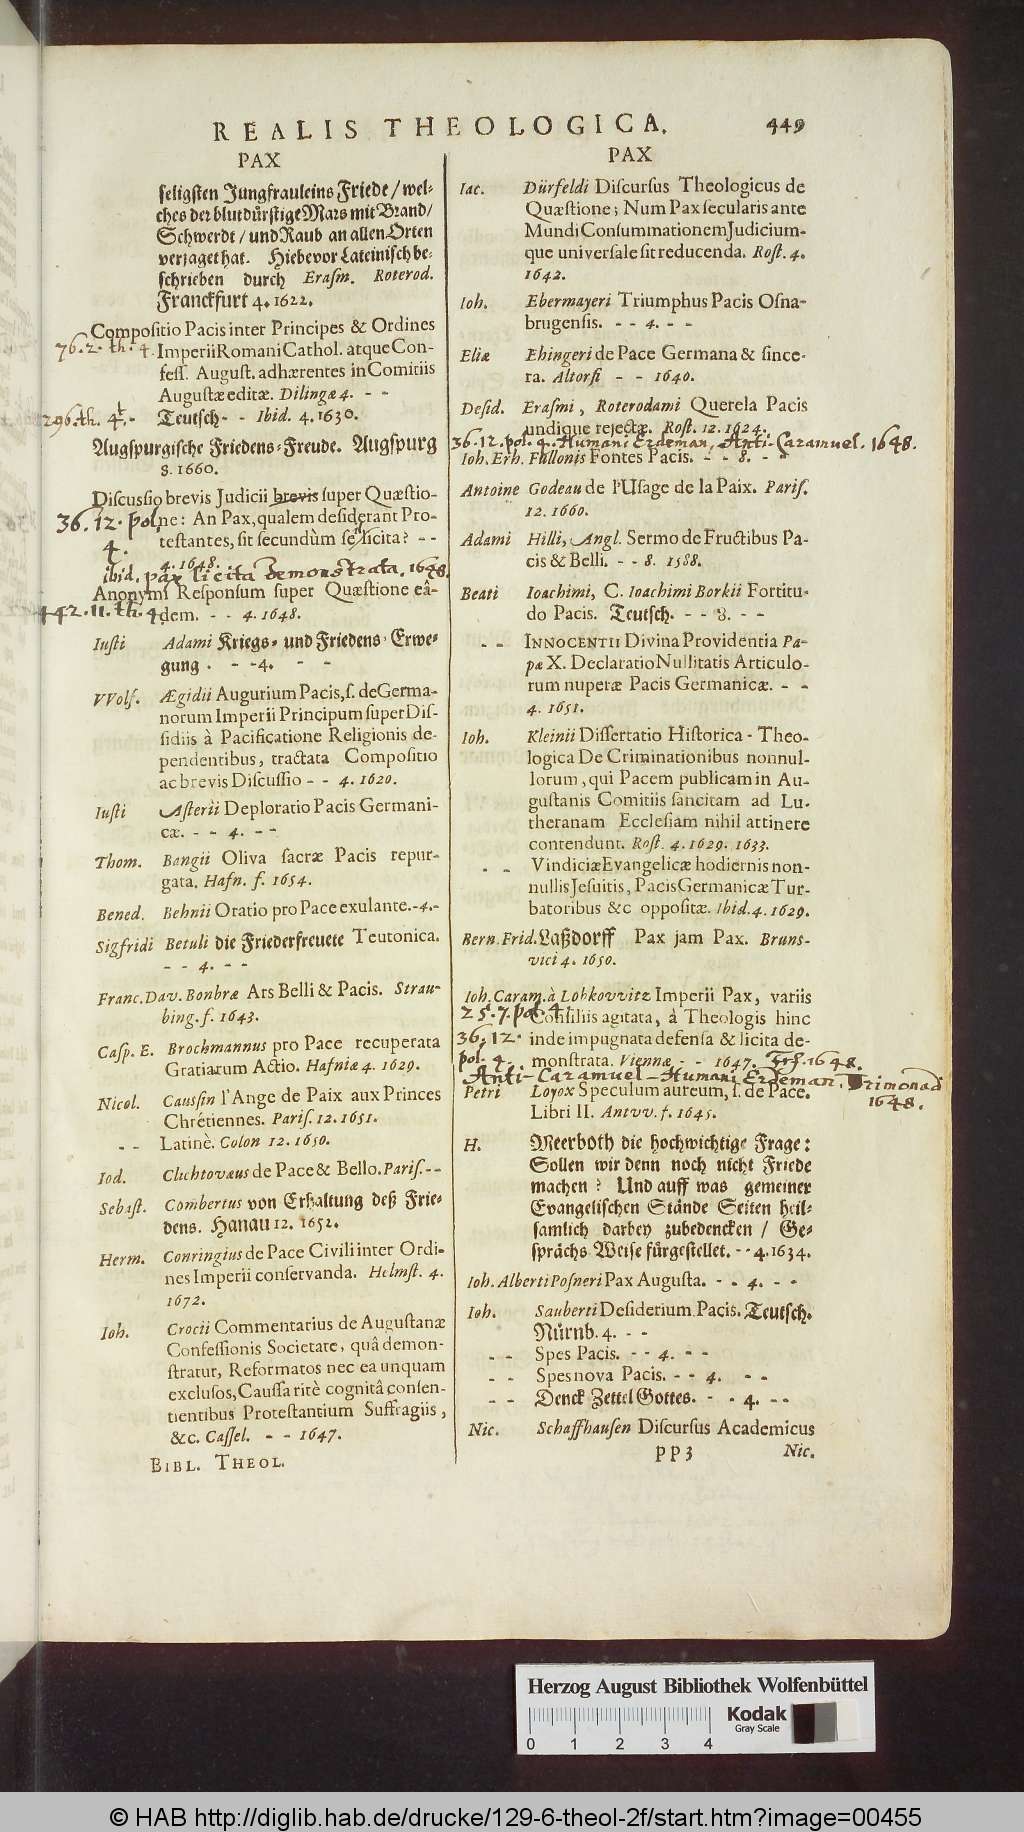 REALIS THEOLOGICA. 449
PAX
seligsten Jungfrauleins Friede / wel-
ches der blutdürstige Mars mit Brand /
Schwerdt / und Raub an allen Orten
verjaget hat. Hiebevor Lateinisch be-
schrieben durch Erasm. Roterod.
Franckfurt 4. 1622.
Compositio Pacis inter Principes & Ordines
76.2. th. 4. Imperii Romani Cathol. atque Con-
fess. August. adhærentes in Comitiis
Augustæ editæ. Dilingæ 4. - -
296. th. 4t. - Teutsch - - Ibid. 4. 1630.
Augspurgische Friedens-Freude. Augspurg
8. 1660.
Discussio brevis Judicii brevis super Quæstio-
36. 12. pol. ne: An Pax, qualem desiderant Pro-
4. testantes, sit secundùm se licita? - -
4. 1648.
ibid. pax licita demonstrata. 1648.
Anonymi Responsum super Quæstione eâ-
442. 11. th. 4. dem. - - 4. 1648.
Iusti Adami Kriegs- und Friedens-Erwe-
gung. - - 4. - -
VVolf. Ægidii Augurium Pacis, s. de Germa-
norum Imperii Principum super Dis-
sidiis à Pacificatione Religionis de-
pendentibus, tractata Compositio
ac brevis Discussio - - 4. 1620.
Iusti Asterii Deploratio Pacis Germani-
cæ. - - 4. - -
Thom. Bangii Oliva sacræ Pacis repur-
gata. Hafn. f. 1654.
Bened. Behnii Oratio pro Pace exulante. - 4. -
Sigfridi Betuli die Friederfreuete Teutonica.
- - 4. - -
Franc. Dav. Bonbræ Ars Belli & Pacis. Strau-
bing. f. 1643.
Casp. E. Brochmannus pro Pace recuperata
Gratiarum Actio. Hafniæ 4. 1629.
Nicol. Caussin l'Ange de Paix aux Princes
Chrétiennes. Paris. 12. 1651.
- - Latinè. Colon 12. 1650.
Iod. Clichtovæus de Pace & Bello. Paris. - -
Sebast. Combertus von Erhaltung deß Frie-
dens. Hanau 12. 1652.
Herm. Conringius de Pace Civili inter Ordi-
nes Imperii conservanda. Helmst. 4.
1672.
Ioh. Crocii Commentarius de Augustanæ
Confessionis Societate, quâ demon-
stratur, Reformatos nec ea unquam
exclusos, Caussa ritè cognitâ consen-
tientibus Protestantium Suffragiis,
&c. Cassel. - - 1647.
BIBL. THEOL.
PAX
Iac. Dürfeldi Discursus Theologicus de
Quæstione; Num Pax secularis ante
Mundi Consummationem Judicium-
que universale sit reducenda. Rost. 4.
1642.
Ioh. Ebermayeri Triumphus Pacis Osna-
brugensis. - - 4. - -
Eliæ Ehingeri de Pace Germana & since-
ra. Altorfi - - 1640.
Desid. Erasmi, Roterodami Querela Pacis
undique rejectæ. Rost. 12. 1624.
36. 12. pol. 4. Humani Erdeman, Anti-Caramuel. 1648.
Ioh. Erh. Fullonis Fontes Pacis. - - 8. - -
Antoine Godeau de l'Usage de la Paix. Paris.
12. 1660.
Adami Hilli, Angl. Sermo de Fructibus Pa-
cis & Belli. - - 8. 1588.
Beati Ioachimi, C. Ioachimi Borkii Fortitu-
do Pacis. Teutsch. - - 8. - -
- - INNOCENTII Divina Providentia Pa-
pæ X. Declaratio Nullitatis Articulo-
rum nuperæ Pacis Germanicæ. - -
4. 1651.
Ioh. Kleinii Dissertatio Historica-Theo-
logica De Criminationibus nonnul-
lorum, qui Pacem publicam in Au-
gustanis Comitiis sancitam ad Lu-
theranam Ecclesiam nihil attinere
contendunt. Rost. 4. 1629. 1633.
- - Vindiciæ Evangelicæ hodiernis non-
nullis Jesuitis, Pacis Germanicæ Tur-
batoribus &c oppositæ. Ibid. 4. 1629.
Bern. Frid. Laßdorff Pax jam Pax. Bruns-
vici 4. 1650.
Ioh. Caram. à Lobkovvitz Imperii Pax, variis
25. 7. pol. 4. Consiliis agitata, à Theologis hinc
36. 12. inde impugnata defensa & licita de-
pol. 4. monstrata. Viennæ - - 1647. Frf. 1648.
Anti-Caramuel - Humani Erdeman. Trimonad
1648.
Petri Loyox Speculum aureum, s. de Pace.
Libri II. Antvv. f. 1645.
H. Meerboth die hochwichtige Frage:
Sollen wir denn noch nicht Friede
machen? Und auff was gemeiner
Evangelischen Stände Seiten heil-
samlich darbey zubedencken / Ge-
sprächs Weise fürgestellet. - - 4. 1634.
Ioh. Alberti Posneri Pax Augusta. - - 4. - -
Ioh. Sauberti Desiderium Pacis. Teutsch.
Nürnb. 4. - -
- - Spes Pacis. - - 4. - -
- - Spes nova Pacis. - - 4. - -
- - Denck Zettel Gottes. - - 4. - -
Nic. Schaffhausen Discursus Academicus
pp 3 Nic.
Herzog August Bibliothek Wolfenbüttel
Kodak
Gray Scale
0 1 2 3 4
© HAB http://diglib.hab.de/drucke/129-6-theol-2f/start.htm?image=00455